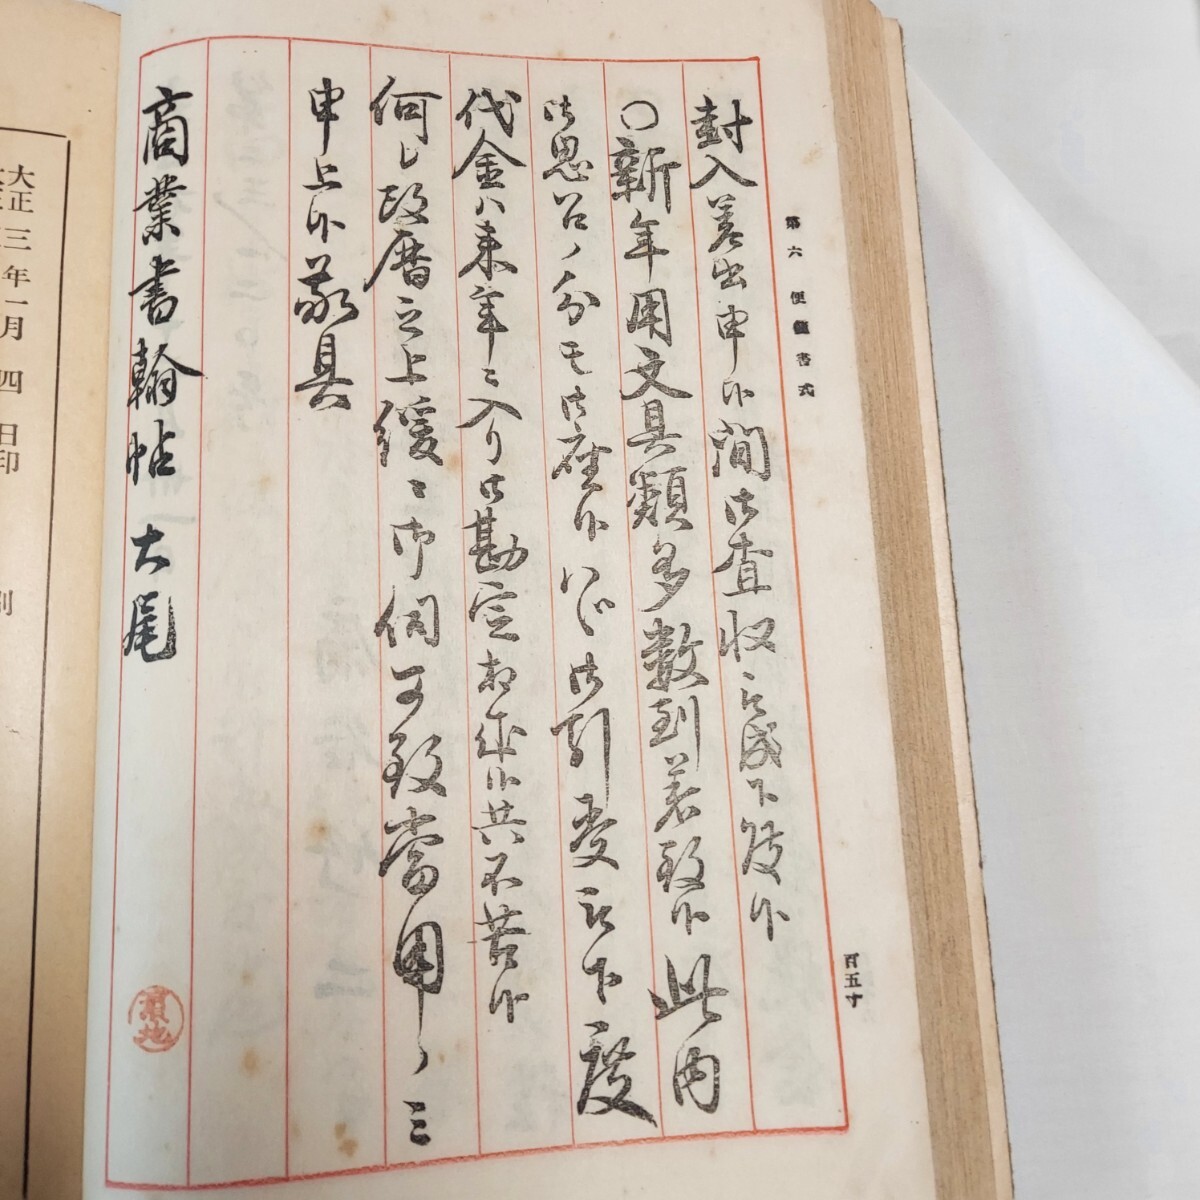 第六 便箋書式
百五十
封入差出申候間御査収被成下度候
〇新年用文具類多數到着致候此内
御思召ノ分モ御座候ハヾ御引受被下度
代金ハ来年ニ入リ御勘定相成候共不苦候
何レ改暦之上緩〻御伺可致當用ノミ
申上候敬具
商業書翰帖 大尾
大正三年一月四日印刷